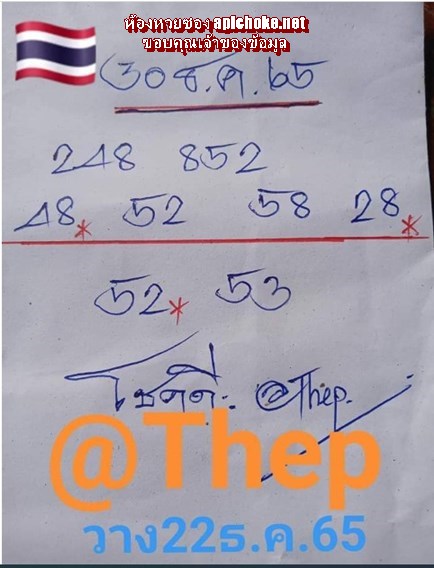 ห้องหวยซอง apichoke.net
ขอบคุณเจ้าของข้อมูล
30 ธ.ค.65
248 852
48* 52 58 28*
52* 53
โชคดี: @Thep.
@Thep
วาง22ธ.ค.65